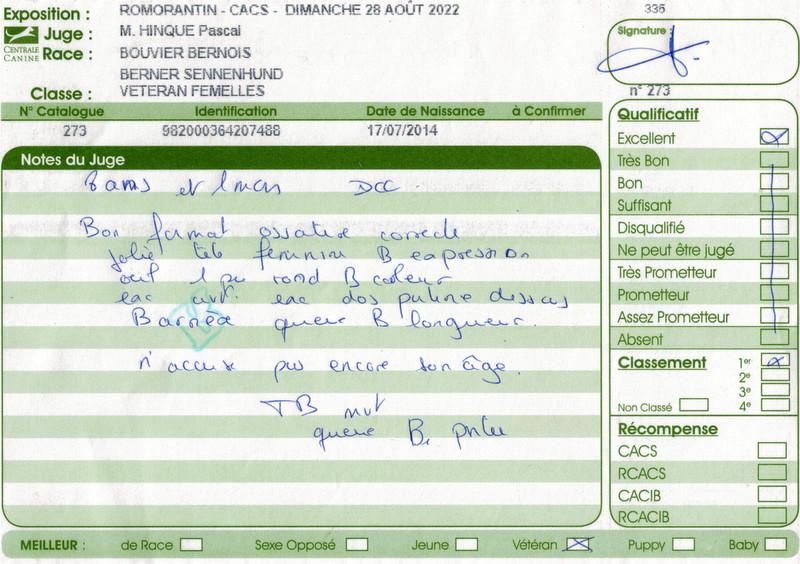 Exposition : ROMORANTIN - CACS - DIMANCHE 28 AOÛT 2022
335
CENTRALE CANINE
Juge : M. HINQUE Pascal
Race : BOUVIER BERNOIS
BERNER SENNENHUND
Classe : VETERAN FEMELLES
Signature :
n° 273
N° Catalogue Identification Date de Naissance à Confirmer
273 982000364207488 17/07/2014
Notes du Juge
8 ans et 1 mois DCC
Bon format ossature correcte
jolie tête féminine B expression
oeil 1 peu rond B couleur
exc exc dos poitrine dessus
B queue B longueur.
n'accuse pas encore son âge.
TB mvt
queue B. portée
Qualificatif
Excellent
Très Bon
Bon
Suffisant
Disqualifié
Ne peut être jugé
Très Prometteur
Prometteur
Assez Prometteur
Absent
Classement 1er
2e
3e
Non Classé 4e
Récompense
CACS
RCACS
CACIB
RCACIB
MEILLEUR : de Race Sexe Opposé Jeune Vétéran Puppy Baby